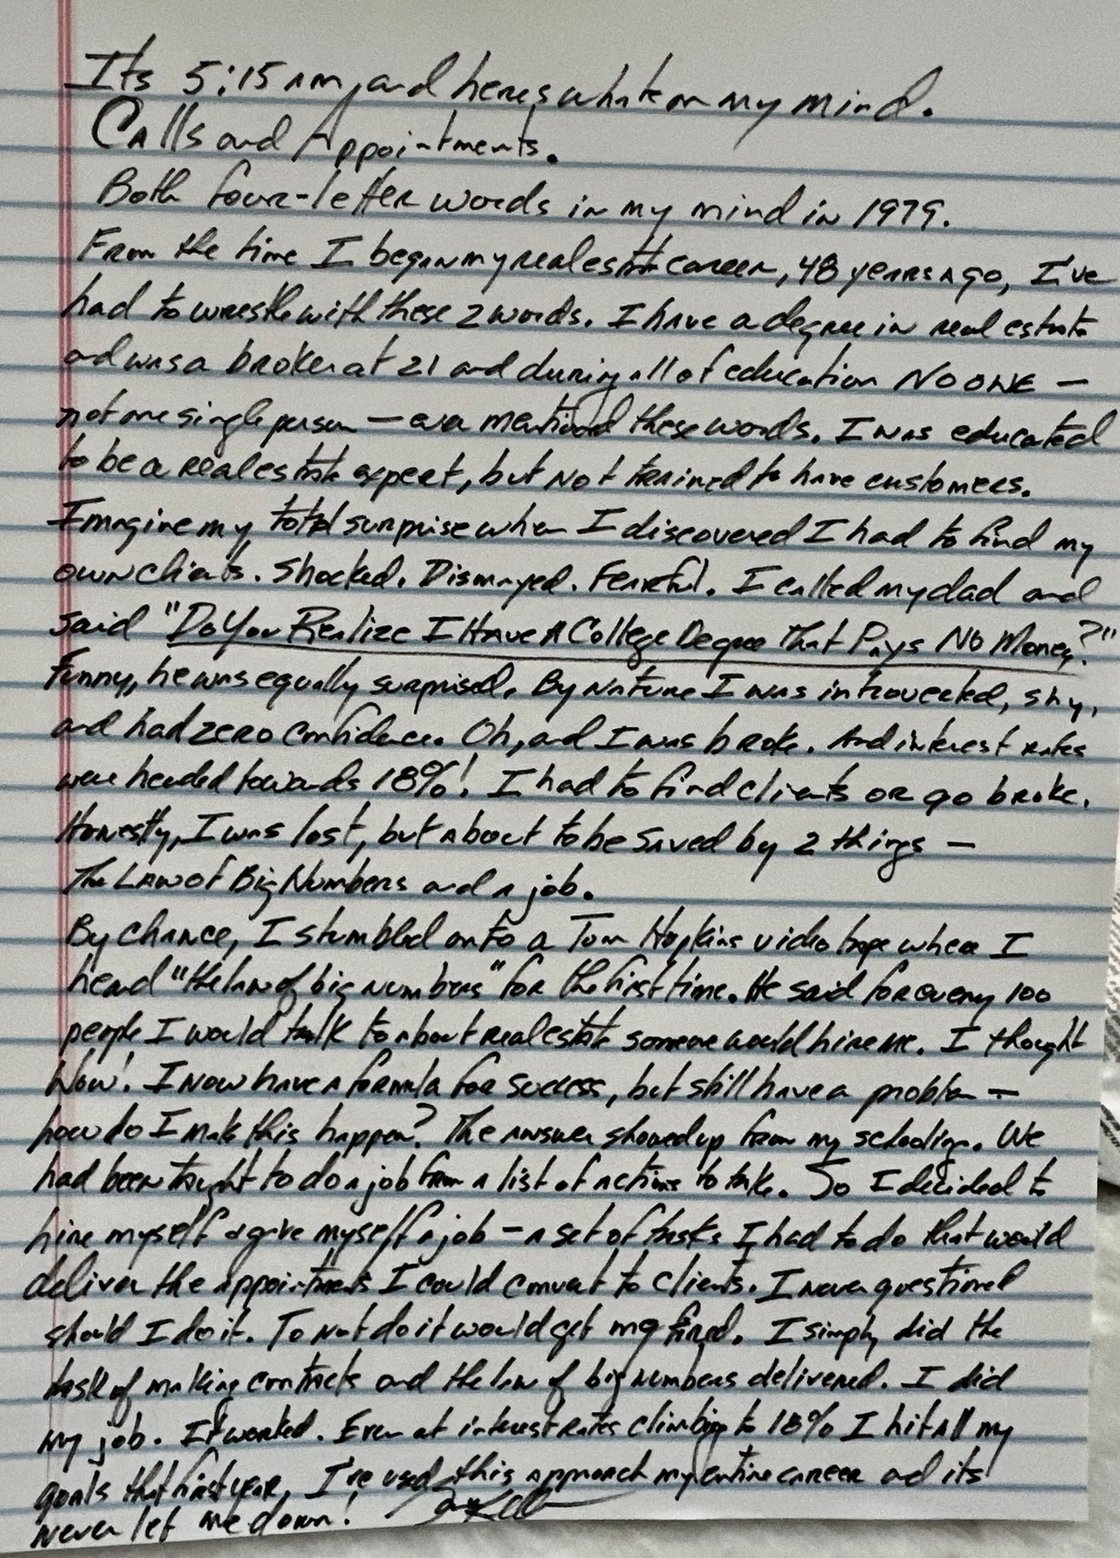 Its 5:15 am, and heres whats on my mind.
Calls and Appointments.
Both four-letter words in my mind in 1979.
From the time I began my real estate career, 48 years ago, I've
had to wrestle with these 2 words. I have a degree in real estate
and was a broker at 21 and during all of education NO ONE —
not one single person — ever mentioned these words. I was educated
to be a real estate expert, but not trained to have customers.
Imagine my total surprise when I discovered I had to find my
own clients. Shocked. Dismayed. Fearful. I called my dad and
said "Do You Realize I Have A College Degree That Pays No Money?"
Funny, he was equally surprised. By nature I was introverted, shy,
and had zero confidence. Oh, and I was broke. And interest rates
were headed towards 18%! I had to find clients or go broke.
Honestly, I was lost, but about to be saved by 2 things —
The Law of Big Numbers and a job.
By chance, I stumbled onto a Tom Hopkins video tape where I
heard "the law of big numbers" for the first time. He said for every 100
people I would talk to about real estate someone would hire me. I thought
Wow! I now have a formula for success, but still have a problem —
how do I make this happen? The answer showed up from my schooling. We
had been taught to do a job from a list of actions to take. So I decided to
hire myself & give myself a job — a set of tasks I had to do that would
deliver the appointments I could convert to clients. I never questioned
should I do it. To not do it would get me fired. I simply did the
task of making contacts and the law of big numbers delivered. I did
my job. It worked. Even at interest rates climbing to 18% I hit all my
goals that first year. I've used this approach my entire career and its
never let me down!